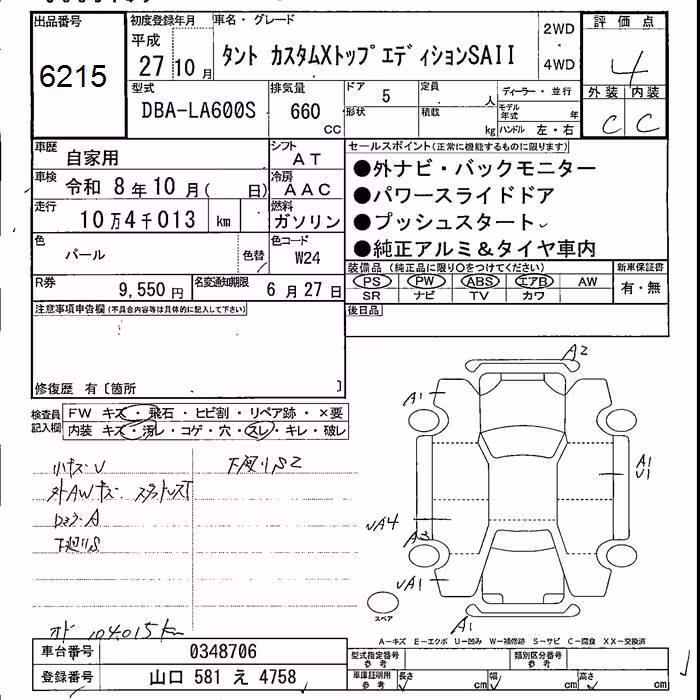 出品番号
6215
初度登録年月
平成
27年10月
車名・グレード
タント カスタムXトップエディションSAII
2WD
4WD
評価点
4
外装 内装
C C
型式
DBA-LA600S
排気量
660
CC
ドア
5
形状
定員
人
積載
kg
ディーラー・並行
モデル年式 年
ハンドル 左・右
車歴
自家用
シフト
AT
車検
令和 8年10月( 日)
冷房
AAC
走行
10万4千013 km
燃料
ガソリン
色
パール
色替
色コード
W24
R券
9,550円
名変通知期限
6月27日
セールスポイント(正常に機能するものに限ります)
●外ナビ・バックモニター
●パワースライドドア
●プッシュスタート
●純正アルミ&タイヤ車内
装備品(純正品に限り○をつけてください)
PS PW ABS エアB AW
SR ナビ TV カワ
新車保証書
有・無
後日品
注意事項申告欄(不具合内容等は具体的に記入して下さい)
修復歴 有〔箇所 〕
検査員記入欄
FW キズ・飛石・ヒビ割・リペア跡・×要
内装 キズ・汚レ・コゲ・穴・スレ・キレ・破レ
小キズU
下廻りS2
外AWキズ
A
下廻りS
オド 104015km
A2
A1
A1
U1
A3
A1
スペア
A－キズ E－エクボ U－凹み W－補修跡 S－サビ C－腐食 XX－交換済
車台番号
0348706
登録番号
山口 581 え 4758
型式指定番号
参考
類別区分番号
参考
車庫証明用
参考
長さ cm 幅 cm 高さ cm